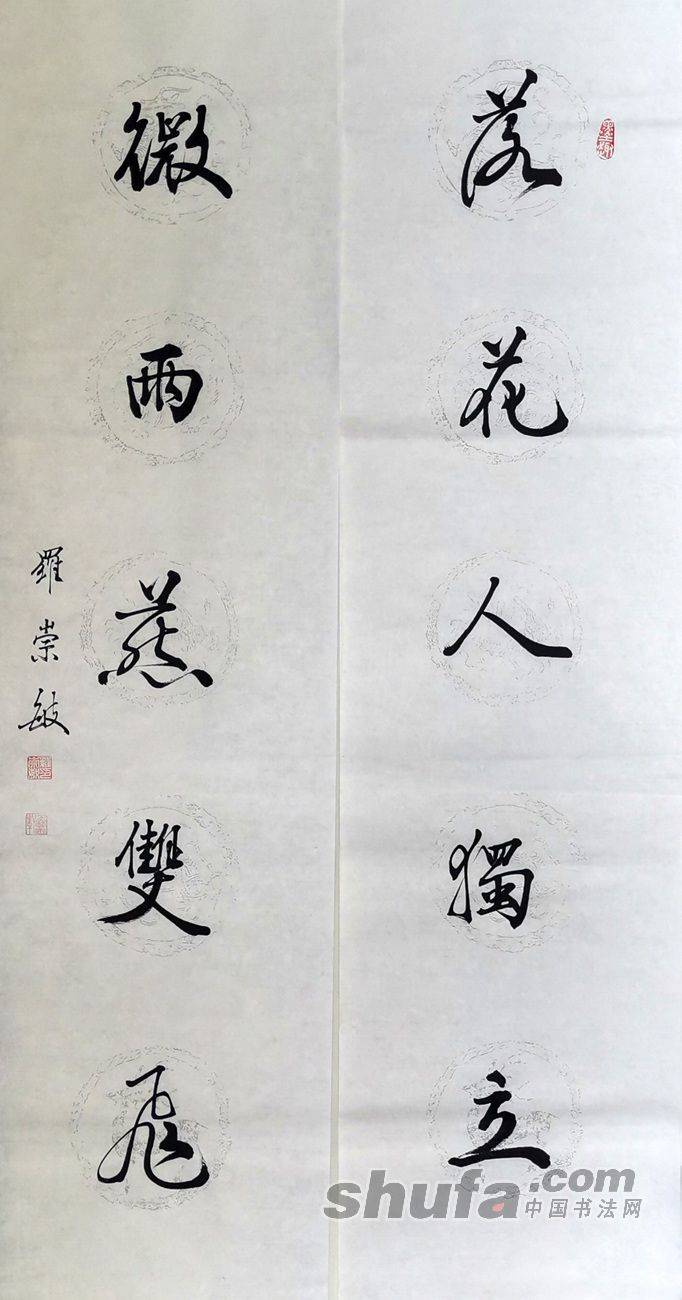 落花人獨立
微雨燕雙飛
羅崇敏
shufa.com
中国书法网